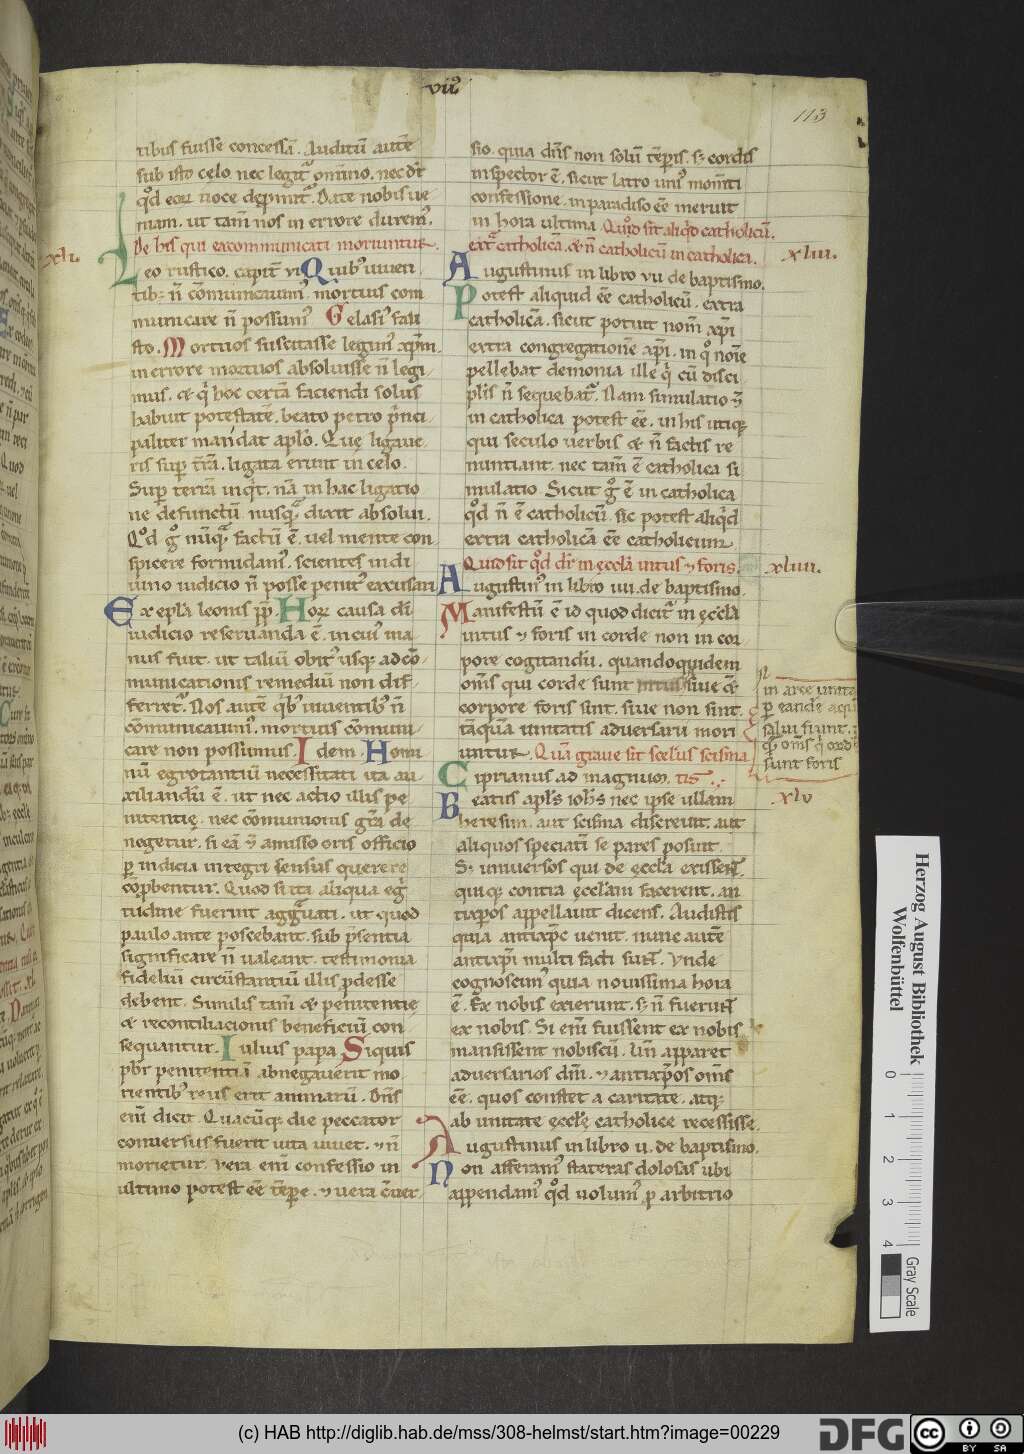 vii⁹
113
tibus fuisse concessā. Auditū autē
sub isto celo. nec legit᷑ omnino. nec dr̄
qd̓ eoꝝ uoce deprimit᷑. Date nobis ue
niam. ut tam̄ nos in errore durem᷒.
De his qui excommunicati moriuntur.
xli.
Leo rustico. capit̄ vi Quib᷒ uiuen
tib; n̄ cōmunicauim᷒. mortuis com
municare n̄ possum᷒. Gelasi᷒ fau
sto. Mortuos suscitasse legim᷒ xp̄m.
in errore mortuos absoluisse n̄ legi
mus. & q̇ hoc certā faciendi solus
habuit potestatē. beato petro p̄nci
paliter mandat ap̄lo. Quę ligaue
ris sup t̄rā. ligata erunt in celo.
Sup terrā inqt̓. nā in hac ligatio
ne defunctū. nusq᷑ dixit absolui.
Qod̓ g̊ nūq᷑ factū ē. uel mente con
spicere formidam᷒. scientes in di
uino iudicio n̄ posse penit᷒ excusari
Ex ep̄la leonis pp̄. Hoꝝ causa dī
iudicio reseruanda ē. in cui᷒ ma
nus fuit. ut taliū obit᷒ usq; ad cō
municationis remediū non dif
ferret᷑. Nos autē qb᷒ uiuentib᷒ n̄
cōmunicauim᷒. mortuis cōmuni
care non possumus. Idem. Homi
nū egrotantiū necessitati ita au
xiliandū ē. ut nec actio illis pe
nitentię. nec cōmunionis grā de
negetur. si eā & amisso oris officio
ꝑ indicia integri sensus querere
cōpbentur. Quod si ita aliqua egͥ
tudine fuerint aggͣuati. ut quod
paulo ante poscebant. sub p̄sentia
significare n̄ ualeant. testimonia
fideliū circūstantiū illis ꝓdesse
debent. Similis tam̄ & penitentię
& reconciliacionis beneficiū con
sequantur. Iulius papa. Siquis
pbr̄ penitentiā abnegauerit mo
rientib᷒ reus erit animarū. Dn̄s
eni̅ dicit. Quacūq; die peccator
conuersus fuerit uita uiuet. & n̄
morietur. Vera eni̅ confessio in
ultimo potest eē tēpe. & uera c̄uer
sio. quia dn̄s non solū tēpis. s; cordis
inspector ē. sicut latro uni᷒ momīti
confessione. in paradiso eē meruit
in hora ultima. Quom̊ sit aliqd̓ catholicū.
extͣ catholicā. & n̄ catholicū in catholica.
xliii.
Augustinus in libro vii de baptismo.
Potest aliquid eē catholicū. extra
catholicā. sicut potuit nom̄ xp̄i
extra congregationē xp̄i. in q̊ noīe
pellebat demonia ille q̇ cū disci
plis̄ n̄ sequebat᷑. Nam simulatio &
in catholica potest eē. in his utiq;
qui seculo uerbis & n̄ factis re
nuntiant. nec tam̄ ē catholica si
mulatio. Sicut g̊ ē in catholica
qd̓ n̄ ē catholicū. sic potest aliqd̓
extra catholicā eē catholicum.
Quid sit qd̓ dr̄ in ęccl̄a intus & foris.
xliiii.
Augustin᷒ in libro iiii. de baptismo.
Manifestū ē id quod dicit᷑ in ęccl̄a
intus & foris in corde non in cor
pore cogitandū. quandoquidem
om̄s qui corde sunt intus siue &
corpore foris sint. siue non sint.
tāquā unitatis aduersarii mori
untur. Quā graue sit scelus scisma
in arce unita
ꝑ eandē aquā
salui fiunt.
q̓ om̄s q̇ cord
sunt foris
xlv
Ciprianus ad magnum. tis.
Beatus apls̄ ioh̄s nec ipse ullam
heresim. aut scisma discreuit. aut
aliquos speciatī se pares posuit.
S; uniuersos qui de ęccl̄a exissent.
quiq; contra ęccl̄am facerent. an
tixp̄os appellauit dicens. Audistis
quia antixp̄c uenit. nunc autē
antixp̄i multi facti sunt. Vnde
cognoscim᷒ quia nouissima hora
ē. Ex nobis exierunt. s; n̄ fuerunt
ex nobis. Si eni̅ fuissent ex nobis
mansissent nobiscū. Vn̄ apparet
aduersarios dm̄. & antixp̄os om̄s
eē. quos constet a caritate. atq;
ab unitate ęccl̄ę catholice recessisse.
Augustinus in libro ii. de baptismo.
Non afferam᷒ stateras dolosas ubi
appendam᷒ qd̓ uolum᷒ ꝓ arbitrio
Herzog August Bibliothek
Wolfenbüttel
0 1 2 3 4
Gray Scale
(c) HAB http://diglib.hab.de/mss/308-helmst/start.htm?image=00229
DFG
cc
BY SA